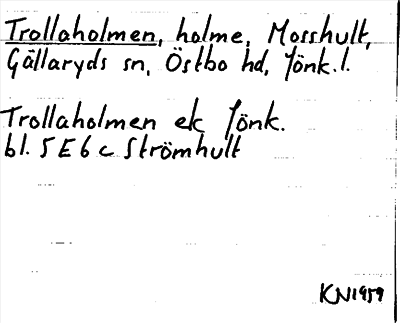 Trollaholmen, holme, Mosshult,
Gällaryds sn, Östbo hd, Jönk.l.
Trollaholmen ek Jönk.
bl. 5E6c Strömhult
KN1959